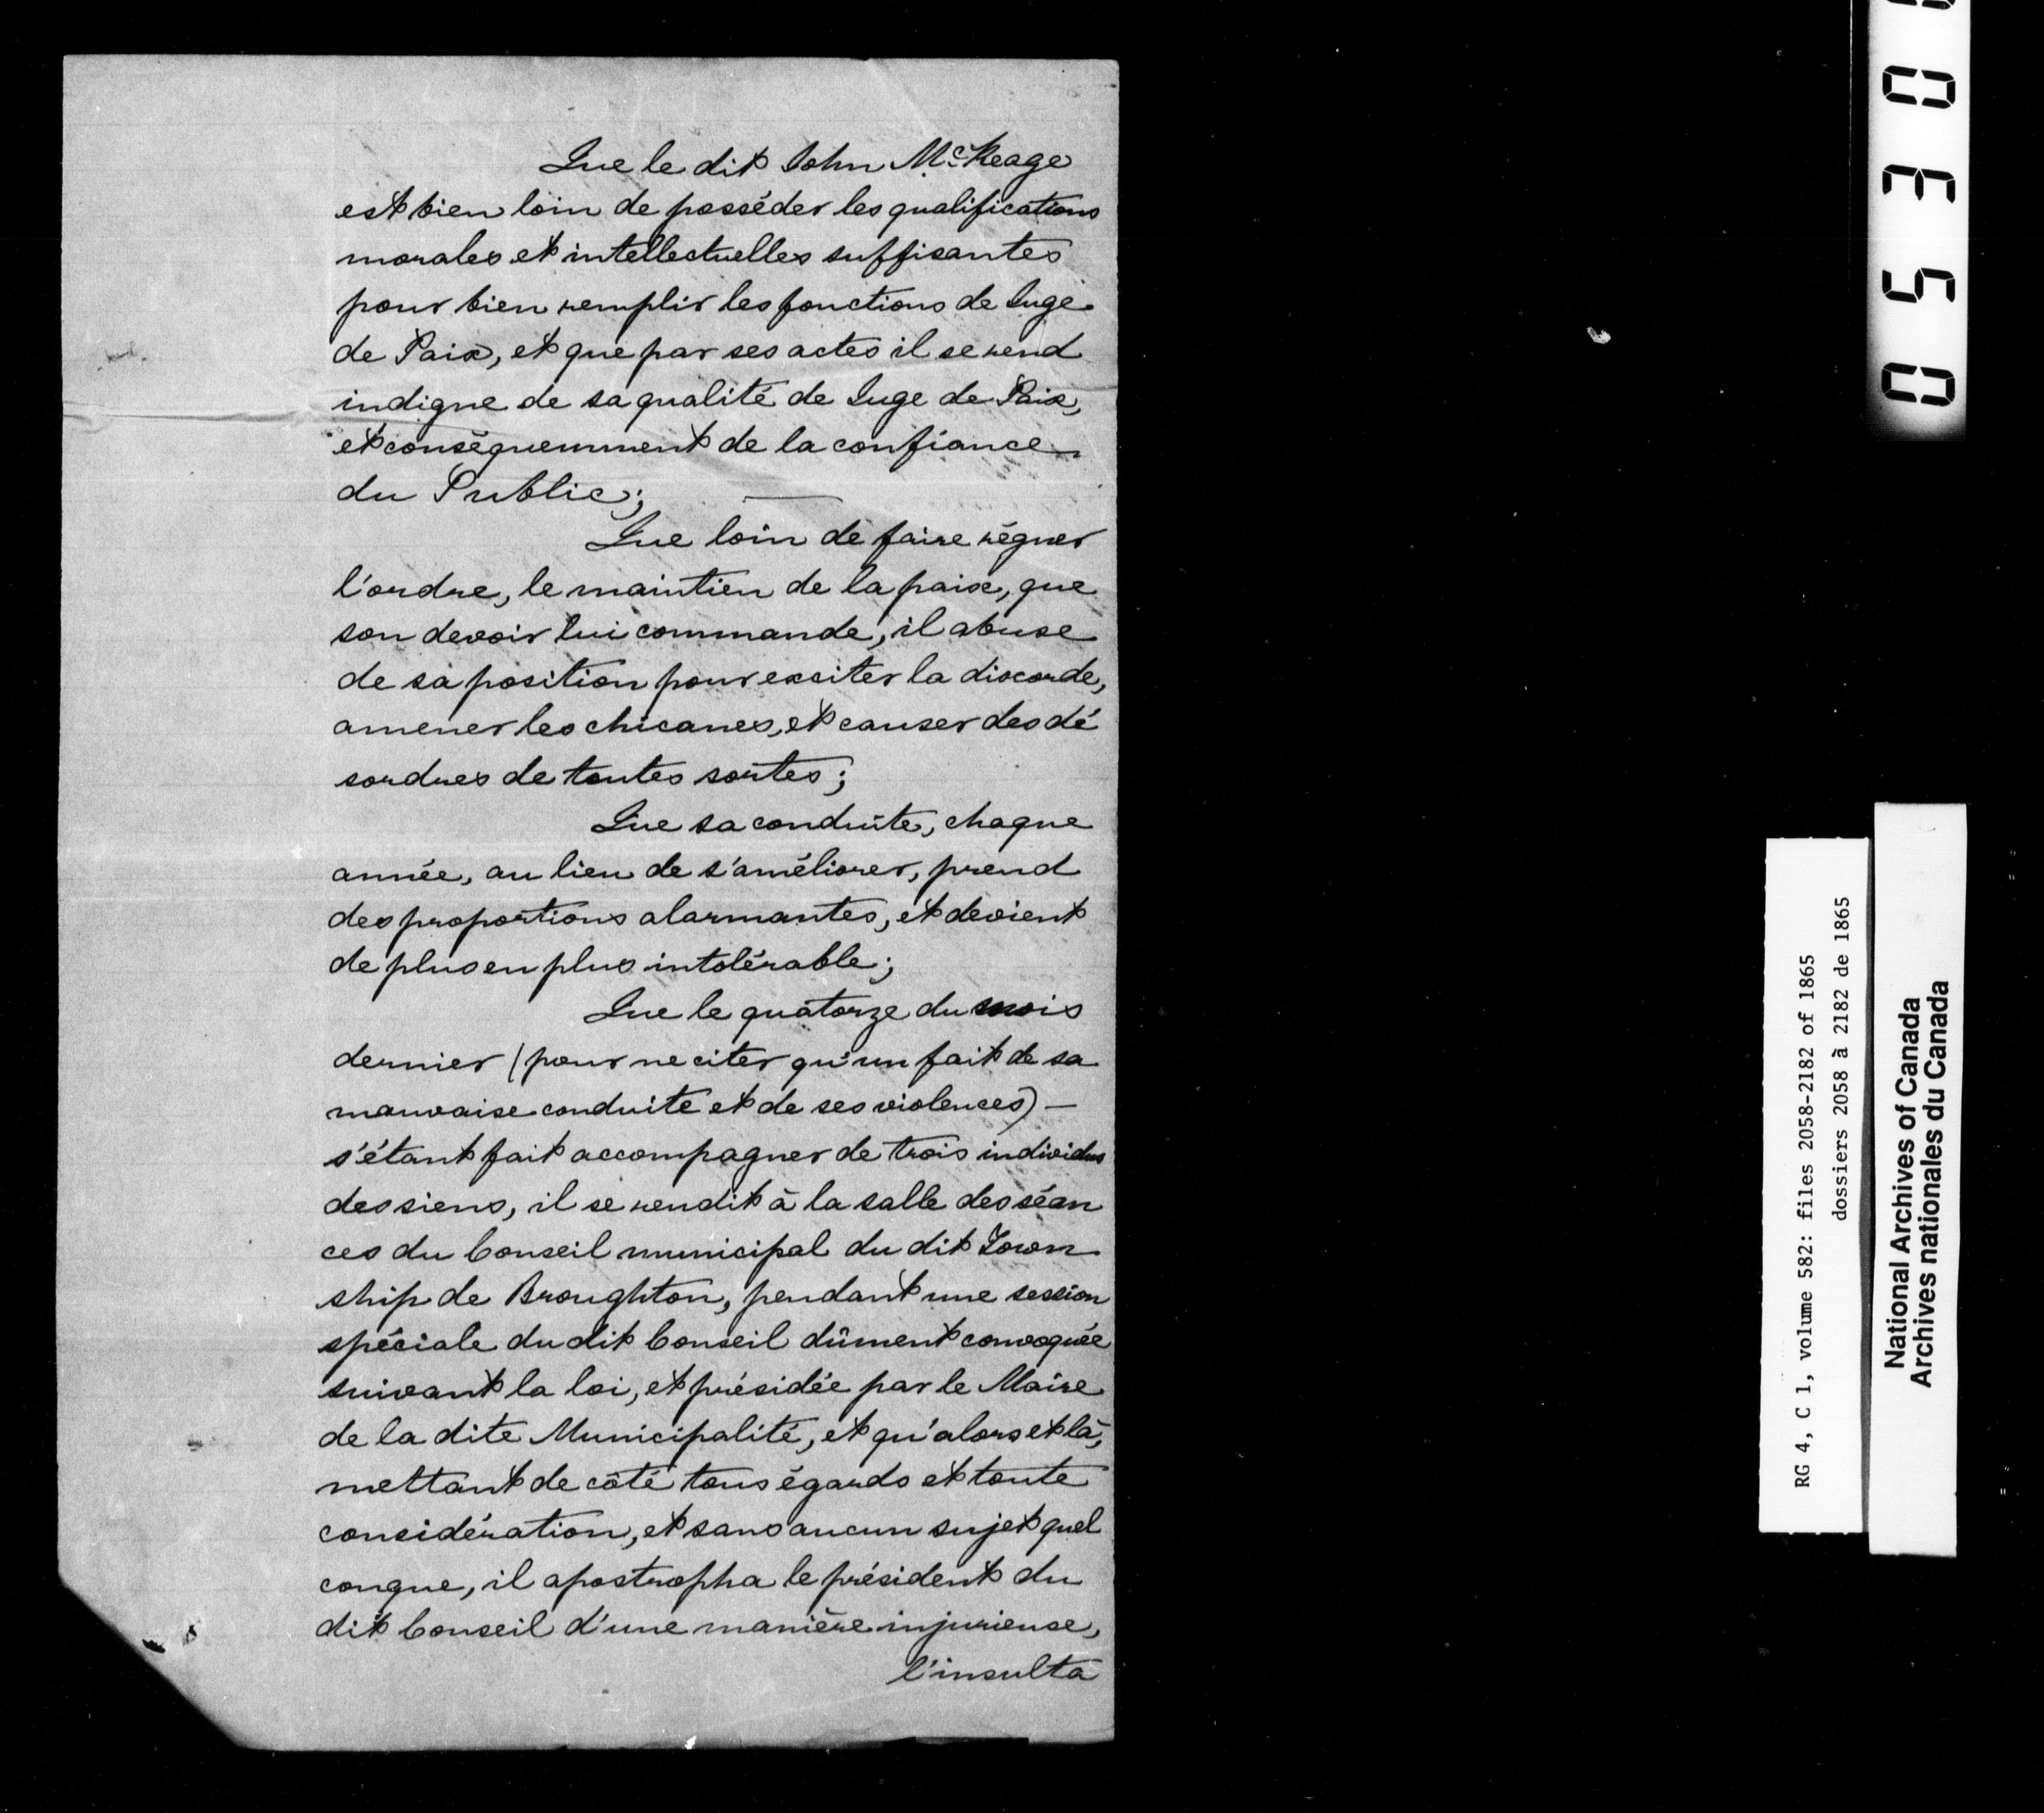 Que le dit John McKeage
est bien loin de posséder les qualifications
morales et intellectuelles suffisantes
pour bien remplir les fonctions de Juge
de Paix, et que par ses actes il se rend
indigne de sa qualité de Juge de Paix,
et conséquemment de la confiance
du Public;
Que loin de faire régner
l'ordre, le maintien de la paix, que
son devoir lui commande, il abuse
de sa position pour exciter la discorde,
amener les chicanes, et causer des dé
sordres de toutes sortes;
Que sa conduite, chaque
année, au lieu de s'améliorer, prend
des proportions alarmantes, et devient
de plus en plus intolérable;
Que le quatorze du mois
dernier (pour ne citer qu'un fait de sa
mauvaise conduite et de ses violences) —
s'étant fait accompagner de trois individus
des siens, il se rendit à la salle des séan
ces du Conseil municipal du dit Town
ship de Broughton, pendant une session
spéciale du dit Conseil dûment convoquée
suivant la loi, et présidée par le Maire
de la dite Municipalité, et qu'alors et là,
mettant de côté tous égards et toute
considération, et sans aucun sujet quel
conque, il apostropha le président du
dit Conseil d'une manière injurieuse,
l'insulta
0530
RG 4, C 1, volume 582: files 2058-2182 of 1865
dossiers 2058 à 2182 de 1865
National Archives of Canada
Archives nationales du Canada